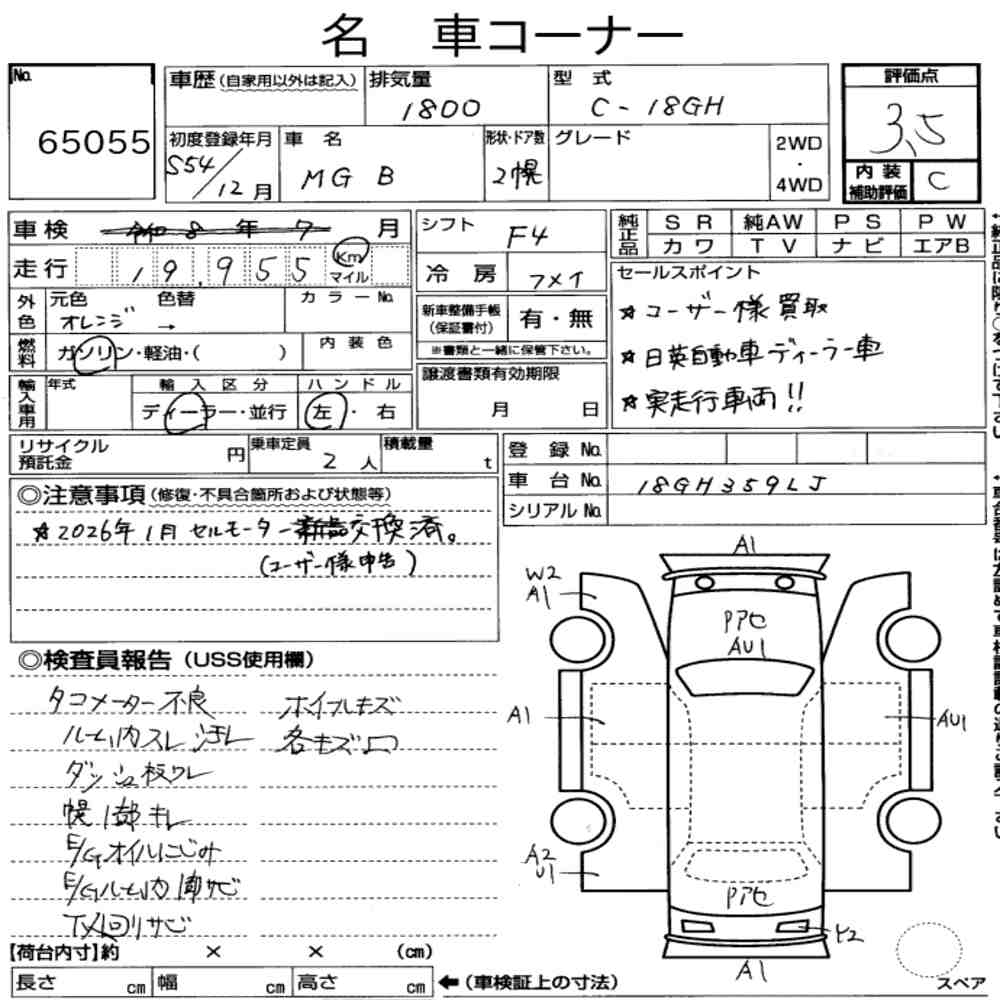 名 車コーナー
No.
65055
車歴(自家用以外は記入)
排気量
1800
型 式
C-18GH
評価点
3.5
初度登録年月
S54/12月
車 名
MG B
形状・ドア数
2幌
グレード
2WD
・
4WD
内 装
補助評価
C
車 検 令和 8 年 7 月
走 行 19,955 Km マイル
シフト
F4
冷 房
純正品
S R 純AW P S P W
カ ワ T V ナ ビ エアB
外色
元色 色替
オレンジ →
カラーNo.
新車整備手帳
(保証書付)
有・無
※書類と一緒に保管下さい。
セールスポイント
☆ユーザー様買取
☆日英自動車ディーラー車
☆実走行車両!!
燃料
ガソリン・軽油・( )
内 装 色
輸入車用
年式
輸 入 区 分
ディーラー・並行
ハ ン ド ル
左・右
譲渡書類有効期限
月 日
リサイクル
預託金
円
乗車定員
2 人
積載量
t
登 録 No.
車 台 No.
18GH359LJ
シリアルNo.
◎注意事項(修復・不具合箇所および状態等)
☆2026年1月 セルモーター新品交換済。
(ユーザー様申告)
◎検査員報告(USS使用欄)
タコメーター不良 ホイールキズ
ルーム内スレ汚レ 各キズ凹
ダッシュ板ワレ
幌1部キレ
E/Gオイルにじみ
E/Gルーム内 サビ
下廻りサビ
A1
W2
A1
Pアセ
AU1
A1
AU1
A2
U1
Pアセ
Y2
A1
スペア
【荷台内寸】約 × × (cm)
長さ cm 幅 cm 高さ cm
←(車検証上の寸法)